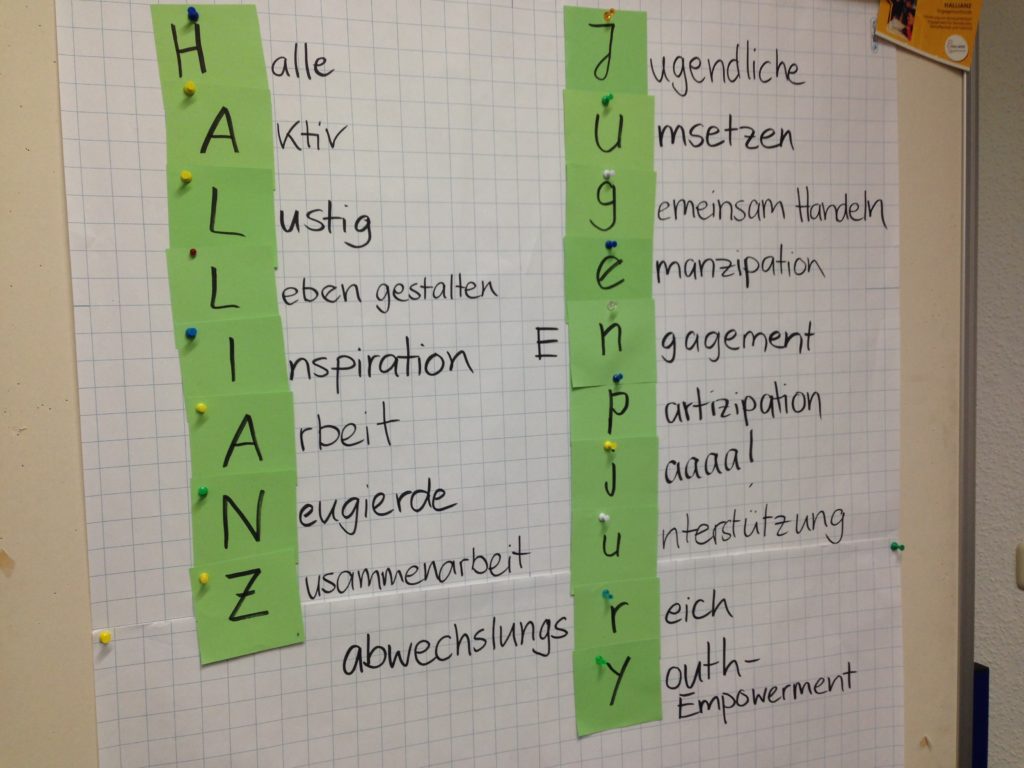 Halle
AKtiv
Lustig
Leben gestalten
Inspiration
Arbeit
Neugierde
Zusammenarbeit
Jugendliche
Umsetzen
gemeinsam Handeln
emanzipation
Engagement
partizipation
jaaaa!
unterstützung
abwechslungsreich
youth-
Empowerment
HALLIANZ